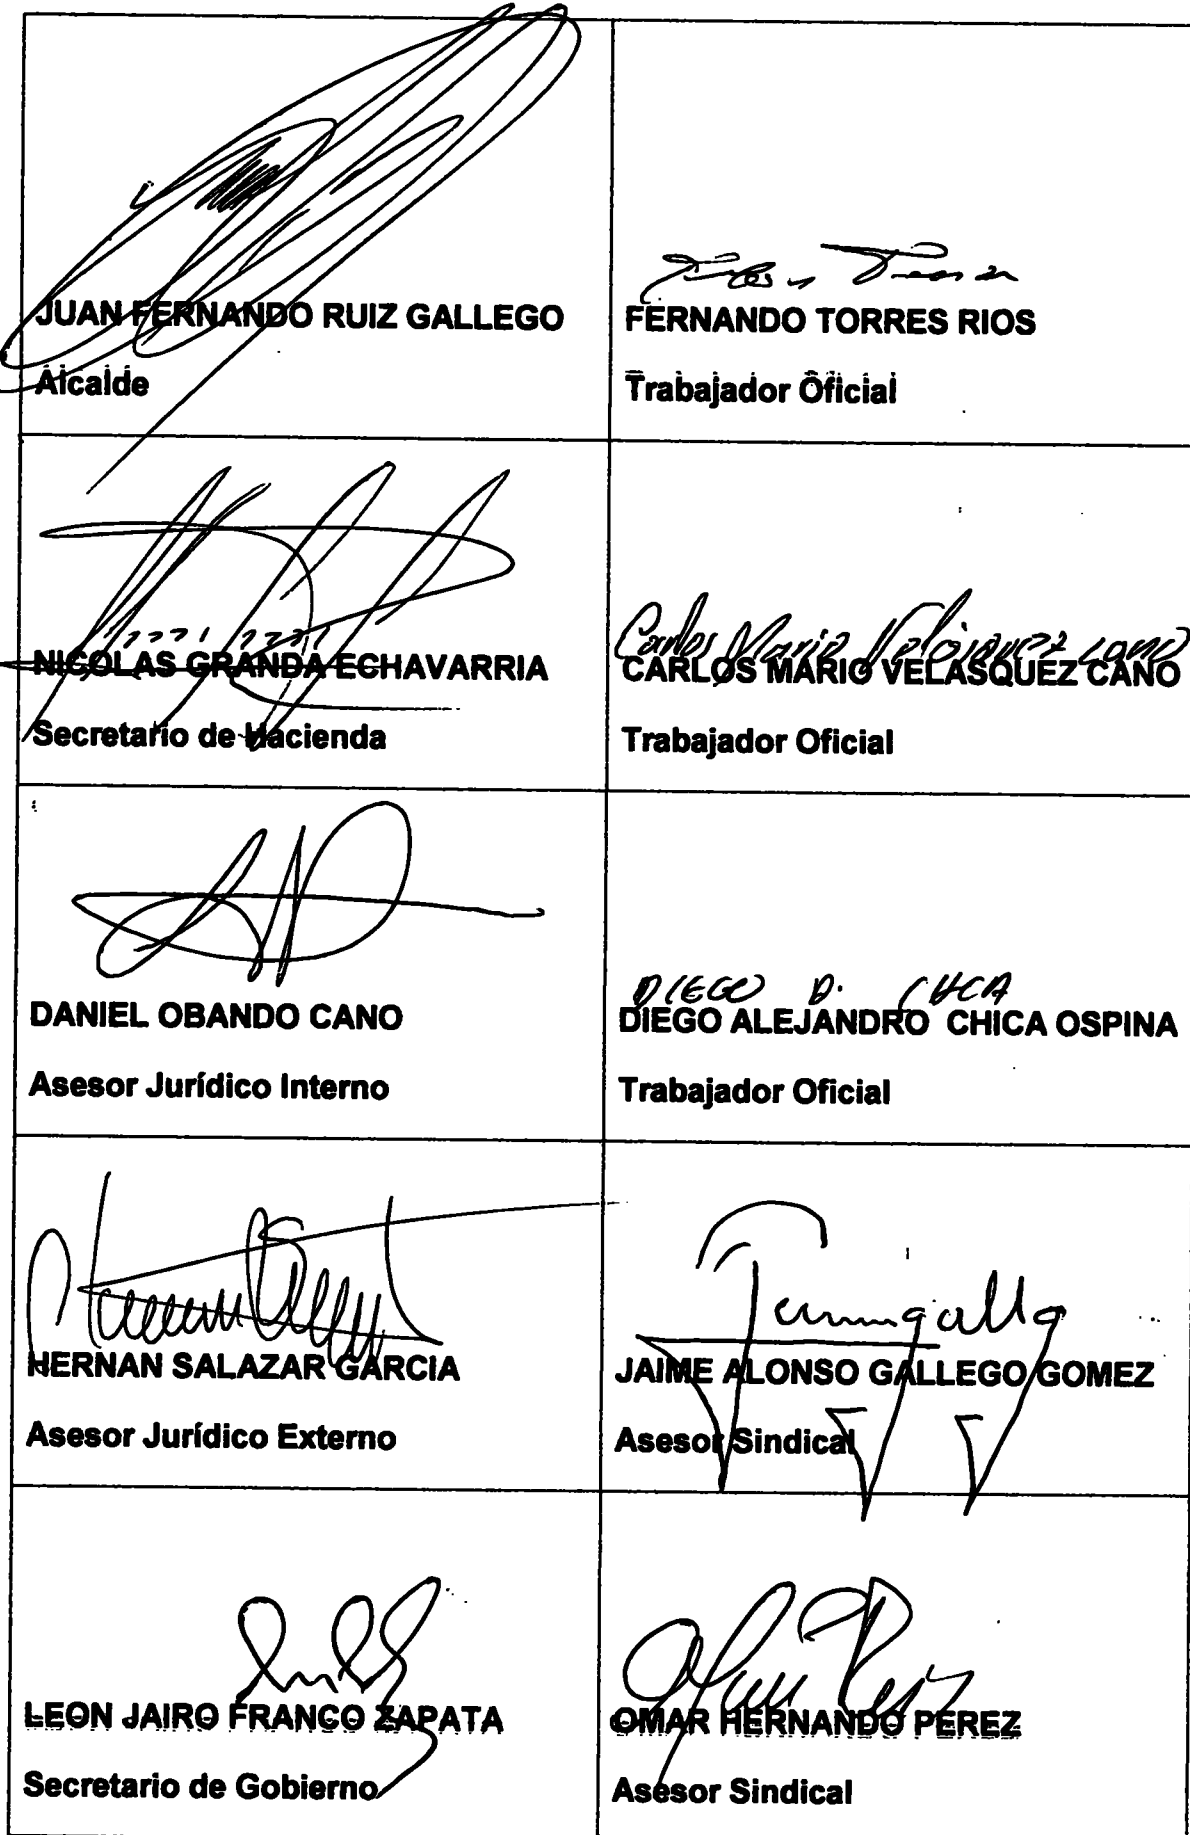 JUAN FERNANDO RUIZ GALLEGO
Alcalde
FERNANDO TORRES RIOS
Trabajador Oficial
NICOLAS GRANDA ECHAVARRIA
Secretario de Hacienda
Carlos Mario Velásquez cano
CARLOS MARIO VELASQUEZ CANO
Trabajador Oficial
DANIEL OBANDO CANO
Asesor Jurídico Interno
DIEGO
DIEGO ALEJANDRO CHICA OSPINA
Trabajador Oficial
HERNAN SALAZAR GARCIA
Asesor Jurídico Externo
JAIME ALONSO GALLEGO GOMEZ
Asesor Sindical
LEON JAIRO FRANCO ZAPATA
Secretario de Gobierno
OMAR HERNANDO PEREZ
Asesor Sindical